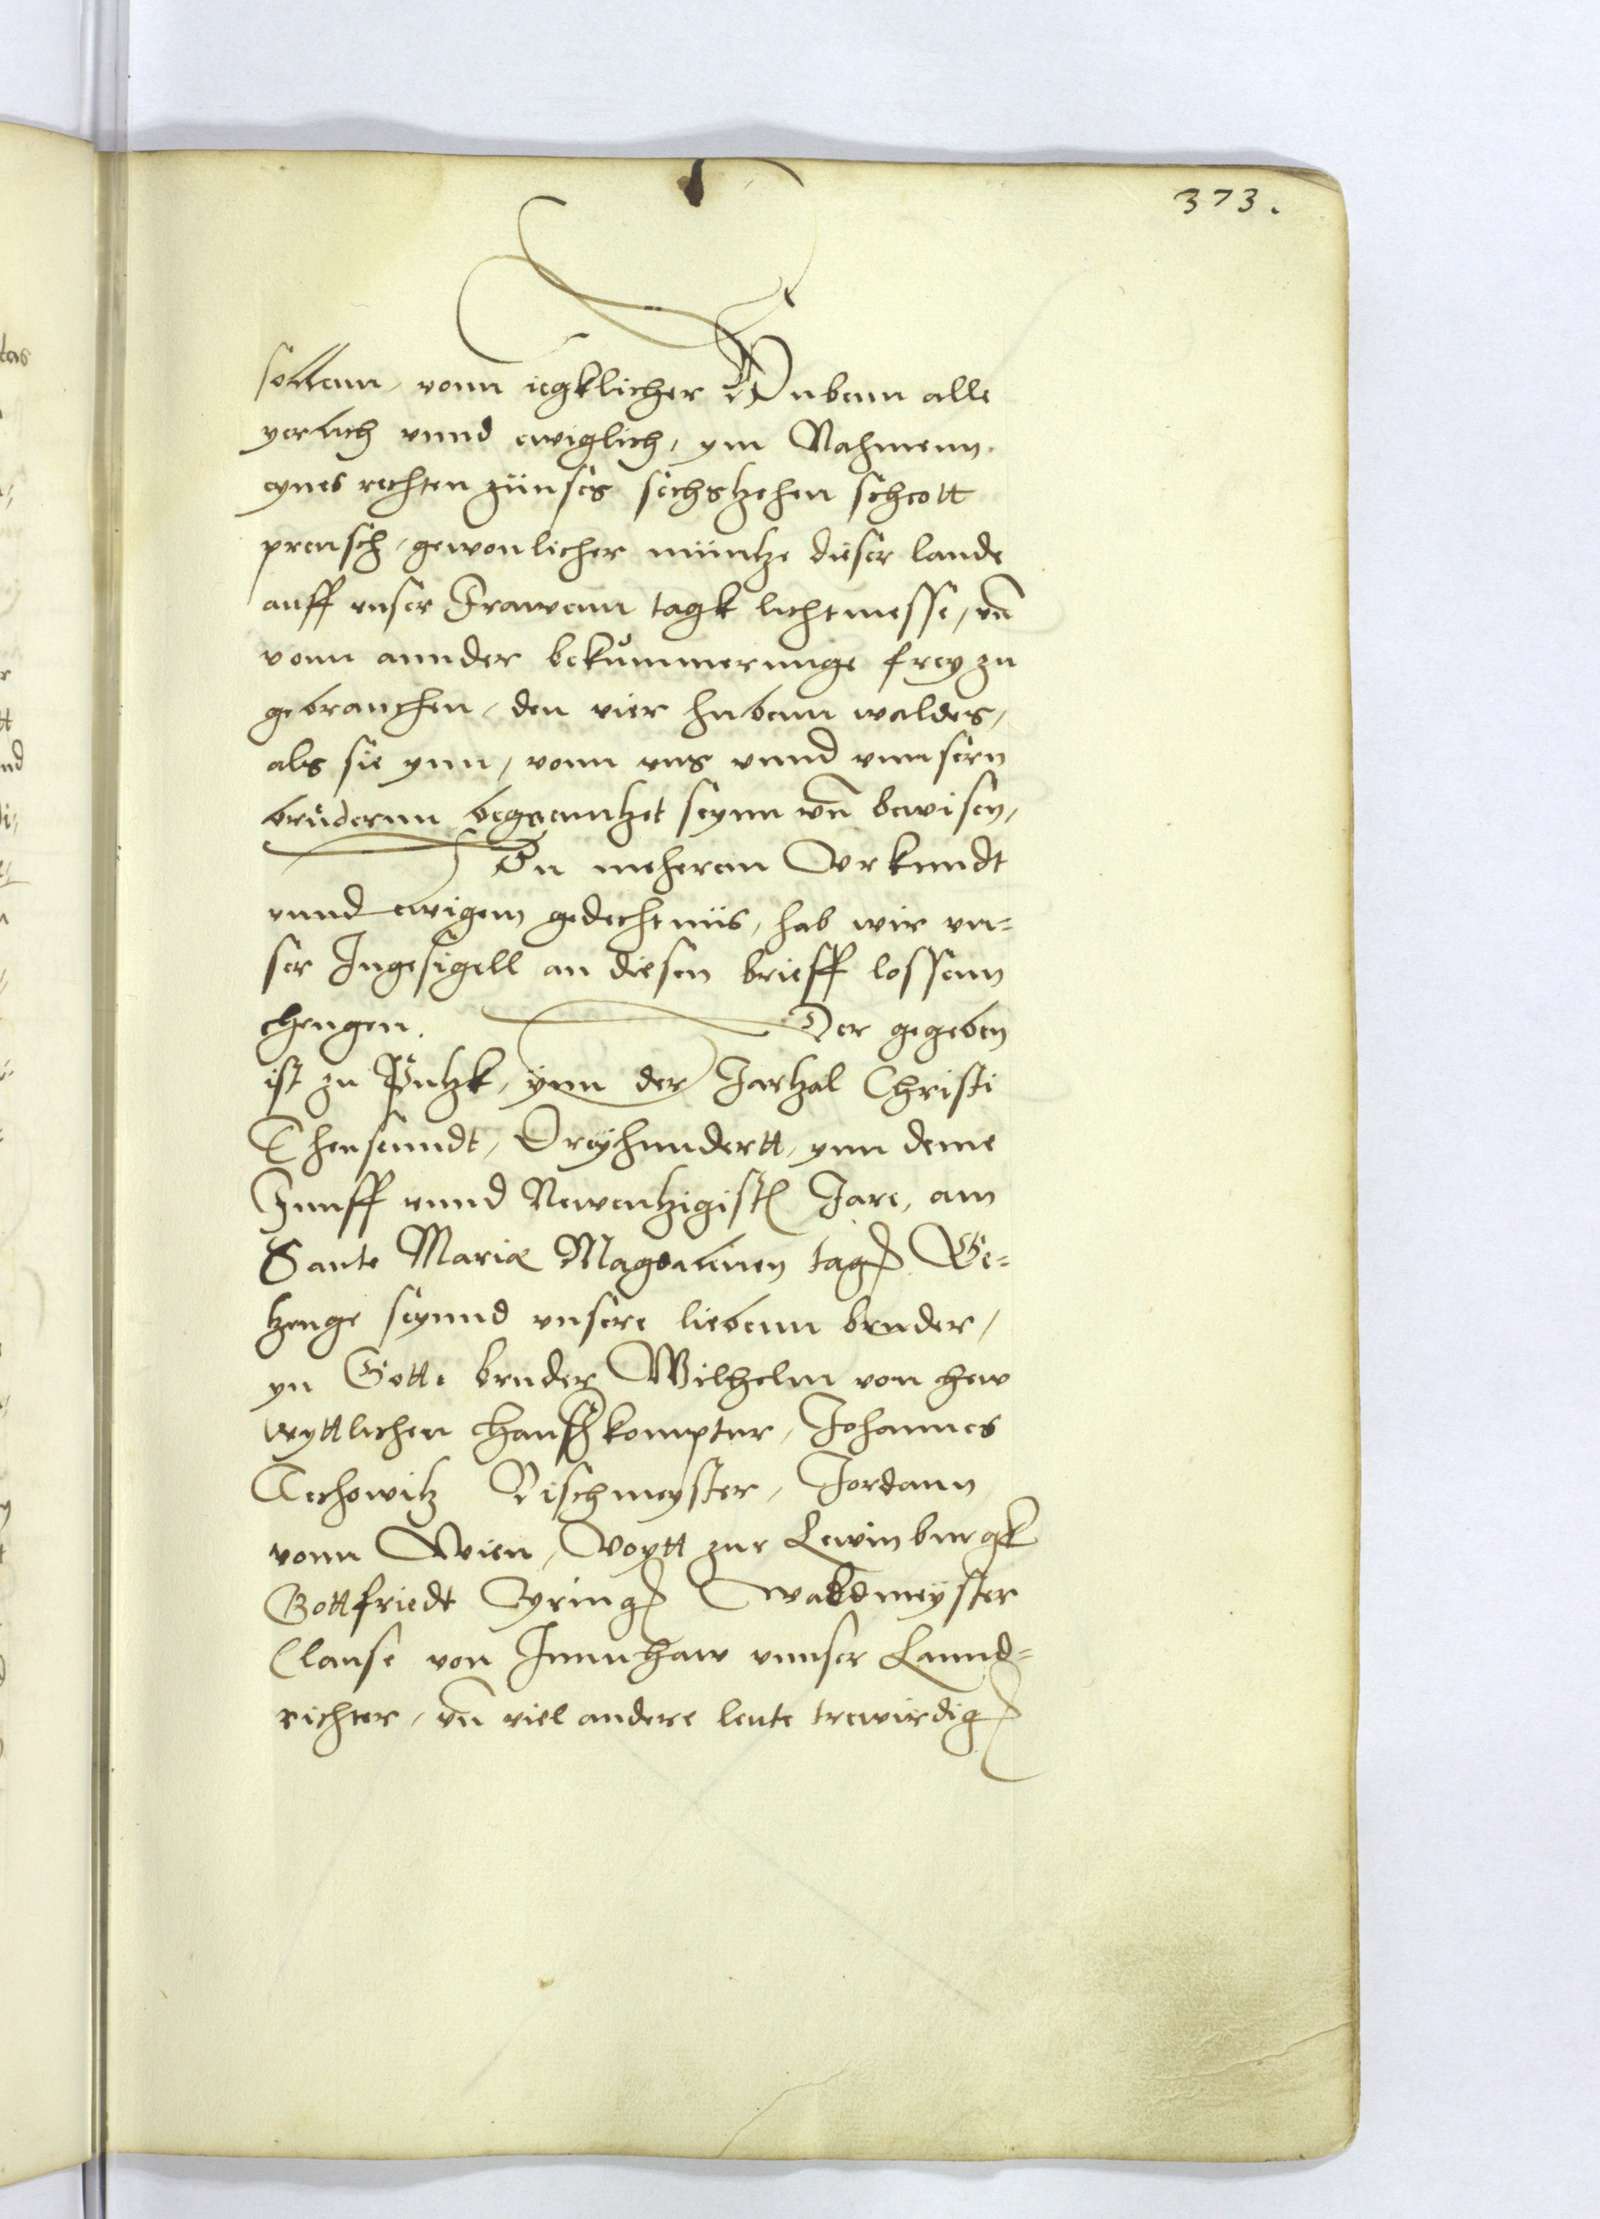 373.
sollenn, vonn iegklicher Hubenn alle
yerlich vnnd ewiglich, ym Nahmenn
eynes rechten zünses sechstzehen schott
preusch, gewonlicher müntze dieser lande
auff vnser Frawenn tagk lichtmesse, vn̄
vonn annder bekummerunge frey zu
gebrauchen, den vier hubenn waldes,
als sie ynn, vonn vns vnnd vnnsern
brüdernn begrenntzet seynn vn̄ bewisen,
Zu meherenn Vrkundt
vnnd ewigem gedechtnüs, hab wir vn-
ser Ingesigell an diesen brieff lossenn
hengen. Der gegeben
ist zu Putzk, ynn der Jartzal Christi
Thausenndt, Dreyhundertt, ynn deme
Funff vnnd Newentzigisten Jare, am
Sante Mariæ Magdalenen tage Ge-
tzeuge seynnd vnsere liebenn bruder,
yn Gott, bruder Wilhelm von hew
wyttlichen Hauskomptur, Johannes
Techowitz Vischmeyster, Jordann
vonn Wien, Voytt zur Lewinburgk
Gottfriedt Waldmeyster
Clause von vnnser Lannd-
richter, vn̄ viel andere leute trewirdige
tas
nd